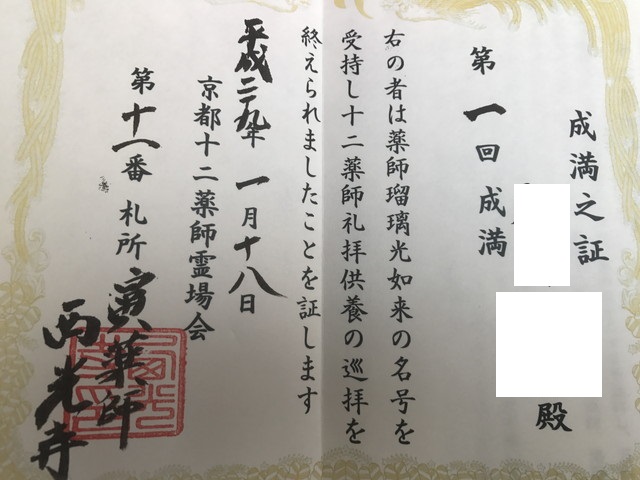 成満之証
殿
第一回成満
右の者は薬師瑠璃光如来の名号を
受持し十二薬師礼拝供養の巡拝を
終えられましたことを証します
平成二九年一月十八日
京都十二薬師霊場会
第十一番札所寅薬師
西光寺